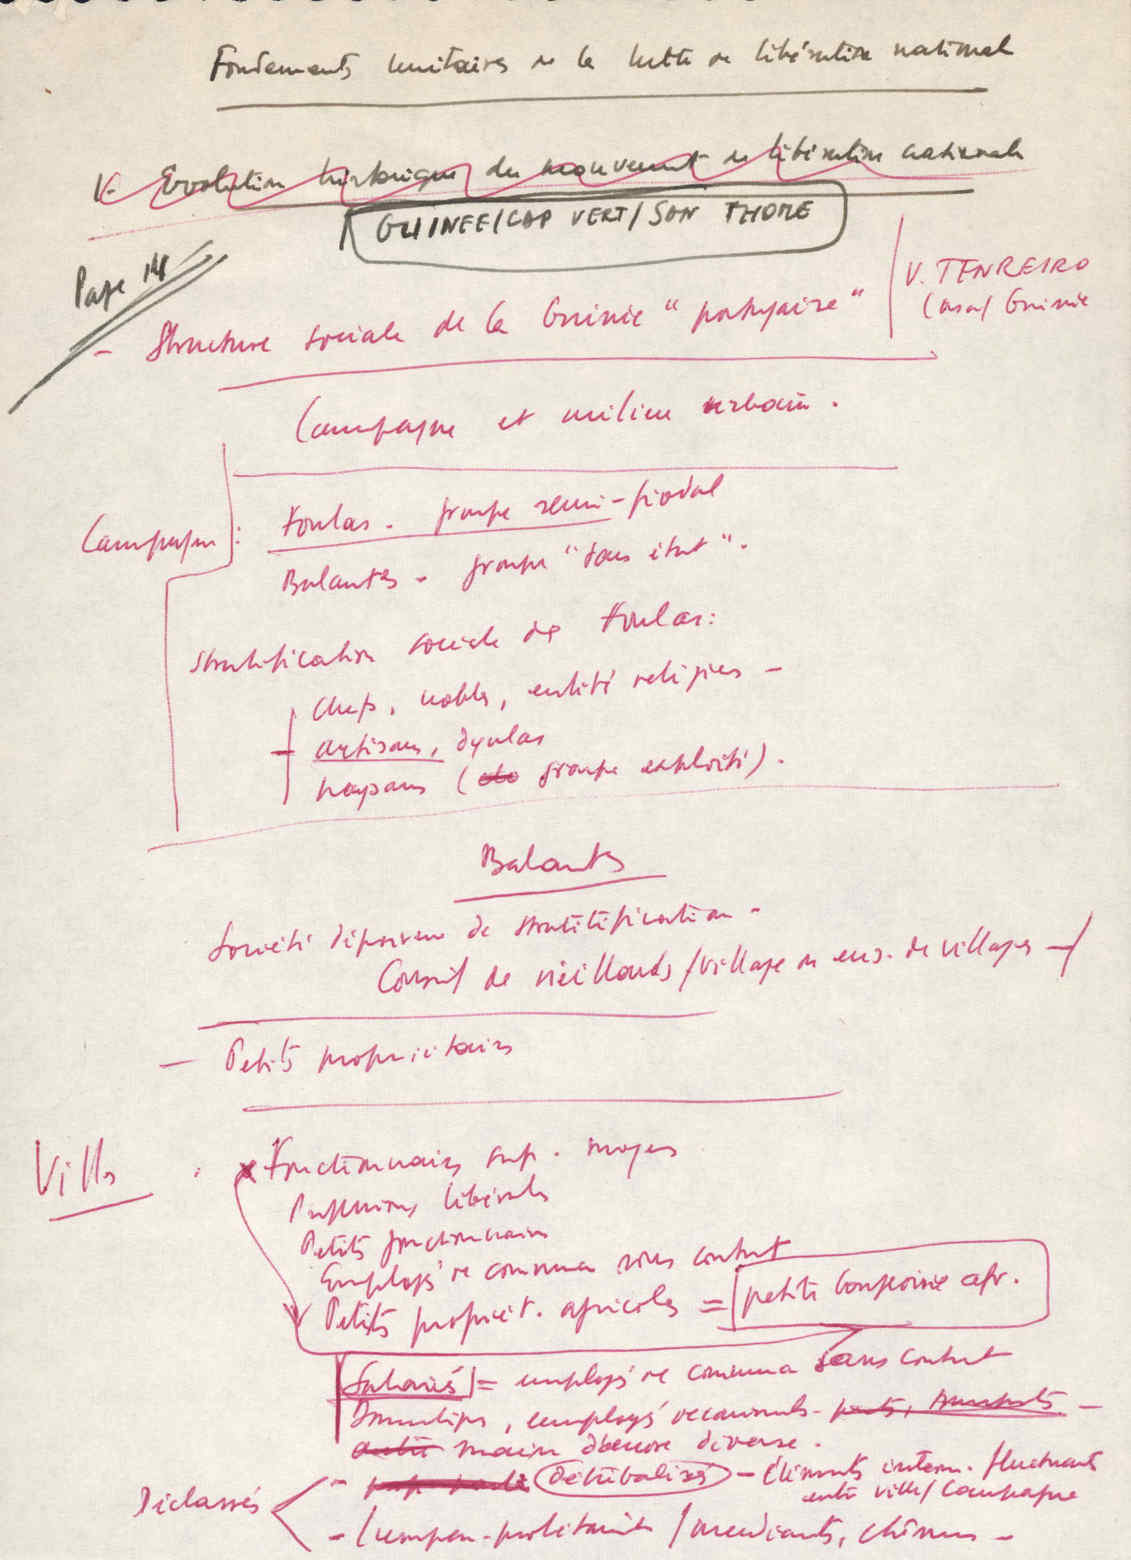 Fondements unitaires de la lutte de libération national
1- Evolution historique du mouvement de libération nationale
GUINEE/CAP VERT/SAN THOME
Page 14
V. TENREIRO
Guinée
- Structure sociale de la Guinée "portugaise"
Campagne et milieu urbain.
Campagne : Foulas - groupe semi-féodal
Balantes - groupe "sans état".
Stratification sociale des Foulas:
chefs, nobles, entité religieus -
- artisans, dyulas
paysans ( groupe exploité).
Balantes
Société dépourvue de stratitification -
Conseil de vieillards/village ou ens. de villages -/
- Petits propriétaires
Villes . Fonctionnaires sup. moyens
Professions libérales
Petits fonctionnaires
Employés de commerce sous contrat
Petits propriét. agricoles = petite bourgeoisie afr.
Salariés = employés de commerce sans contrat
Domestiques, employés - ports, transports -
main d'oeuvre diverse.
Déclassés
- détribalisés - Eléments interm. fluctuants
entre ville/campagne
- Lumpen-prolétariat / mendiants, chômeurs -